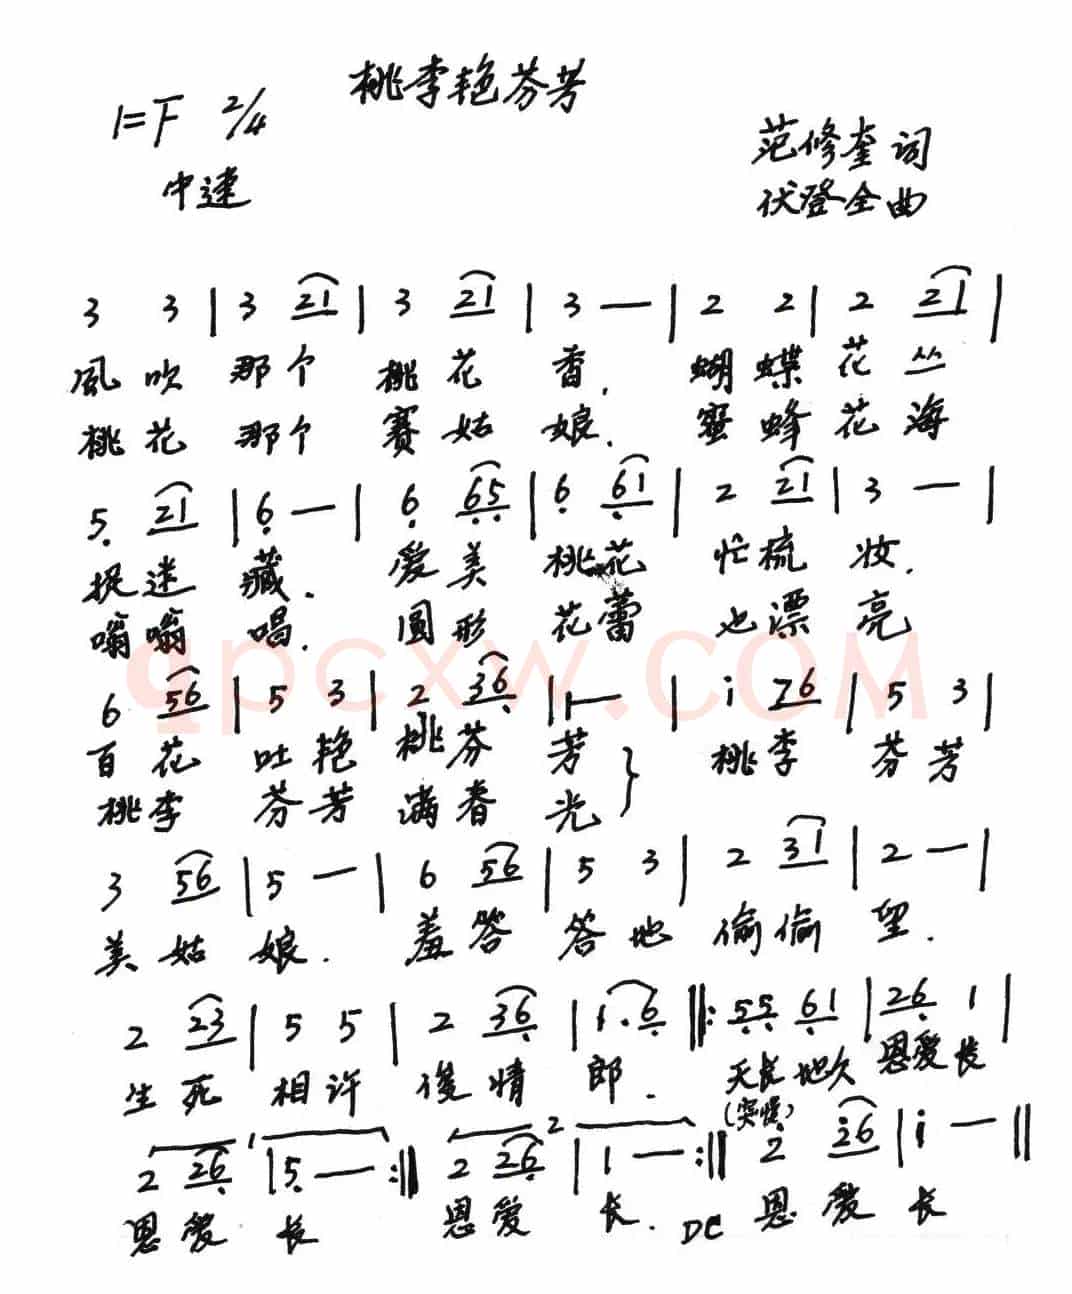 桃李艳芬芳
1=F 2/4
中速
范修奎 词
伏登全 曲
3 3 | 3 21 | 3 21 | 3 — | 2 2 | 2 21 |
風吹 那个 桃花 香. 蝴蝶 花丛
桃花 那个 赛姑 娘. 蜜蜂 花海
5 21 | 6 — | 6 65 | 6 61 | 2 21 | 3 — |
捉迷 藏. 爱美 桃花 忙梳 妆.
嗡嗡 唱. 圆形 花蕾 也漂 亮
qpcxw.COM
6 56 | 5 3 | 2 36 | 1 — | i 76 | 5 3 |
百花 吐艳 桃芬 芳 } 桃李 芬芳
桃李 芬芳 满春 光
3 56 | 5 — | 6 56 | 5 3 | 2 31 | 2 — |
美姑 娘. 羞答 答地 偷偷 望.
2 23 | 5 5 | 2 36 | 1. 6 ‖: 55 61 | 26 1 |
生死 相许 俊情 郎. 天长地久 恩爱长
(突慢)
2 26 | 5 — :‖ 2 26 | 1 — :‖ 2 26 | i — ‖
恩爱 长 恩爱 长. DC 恩爱 长